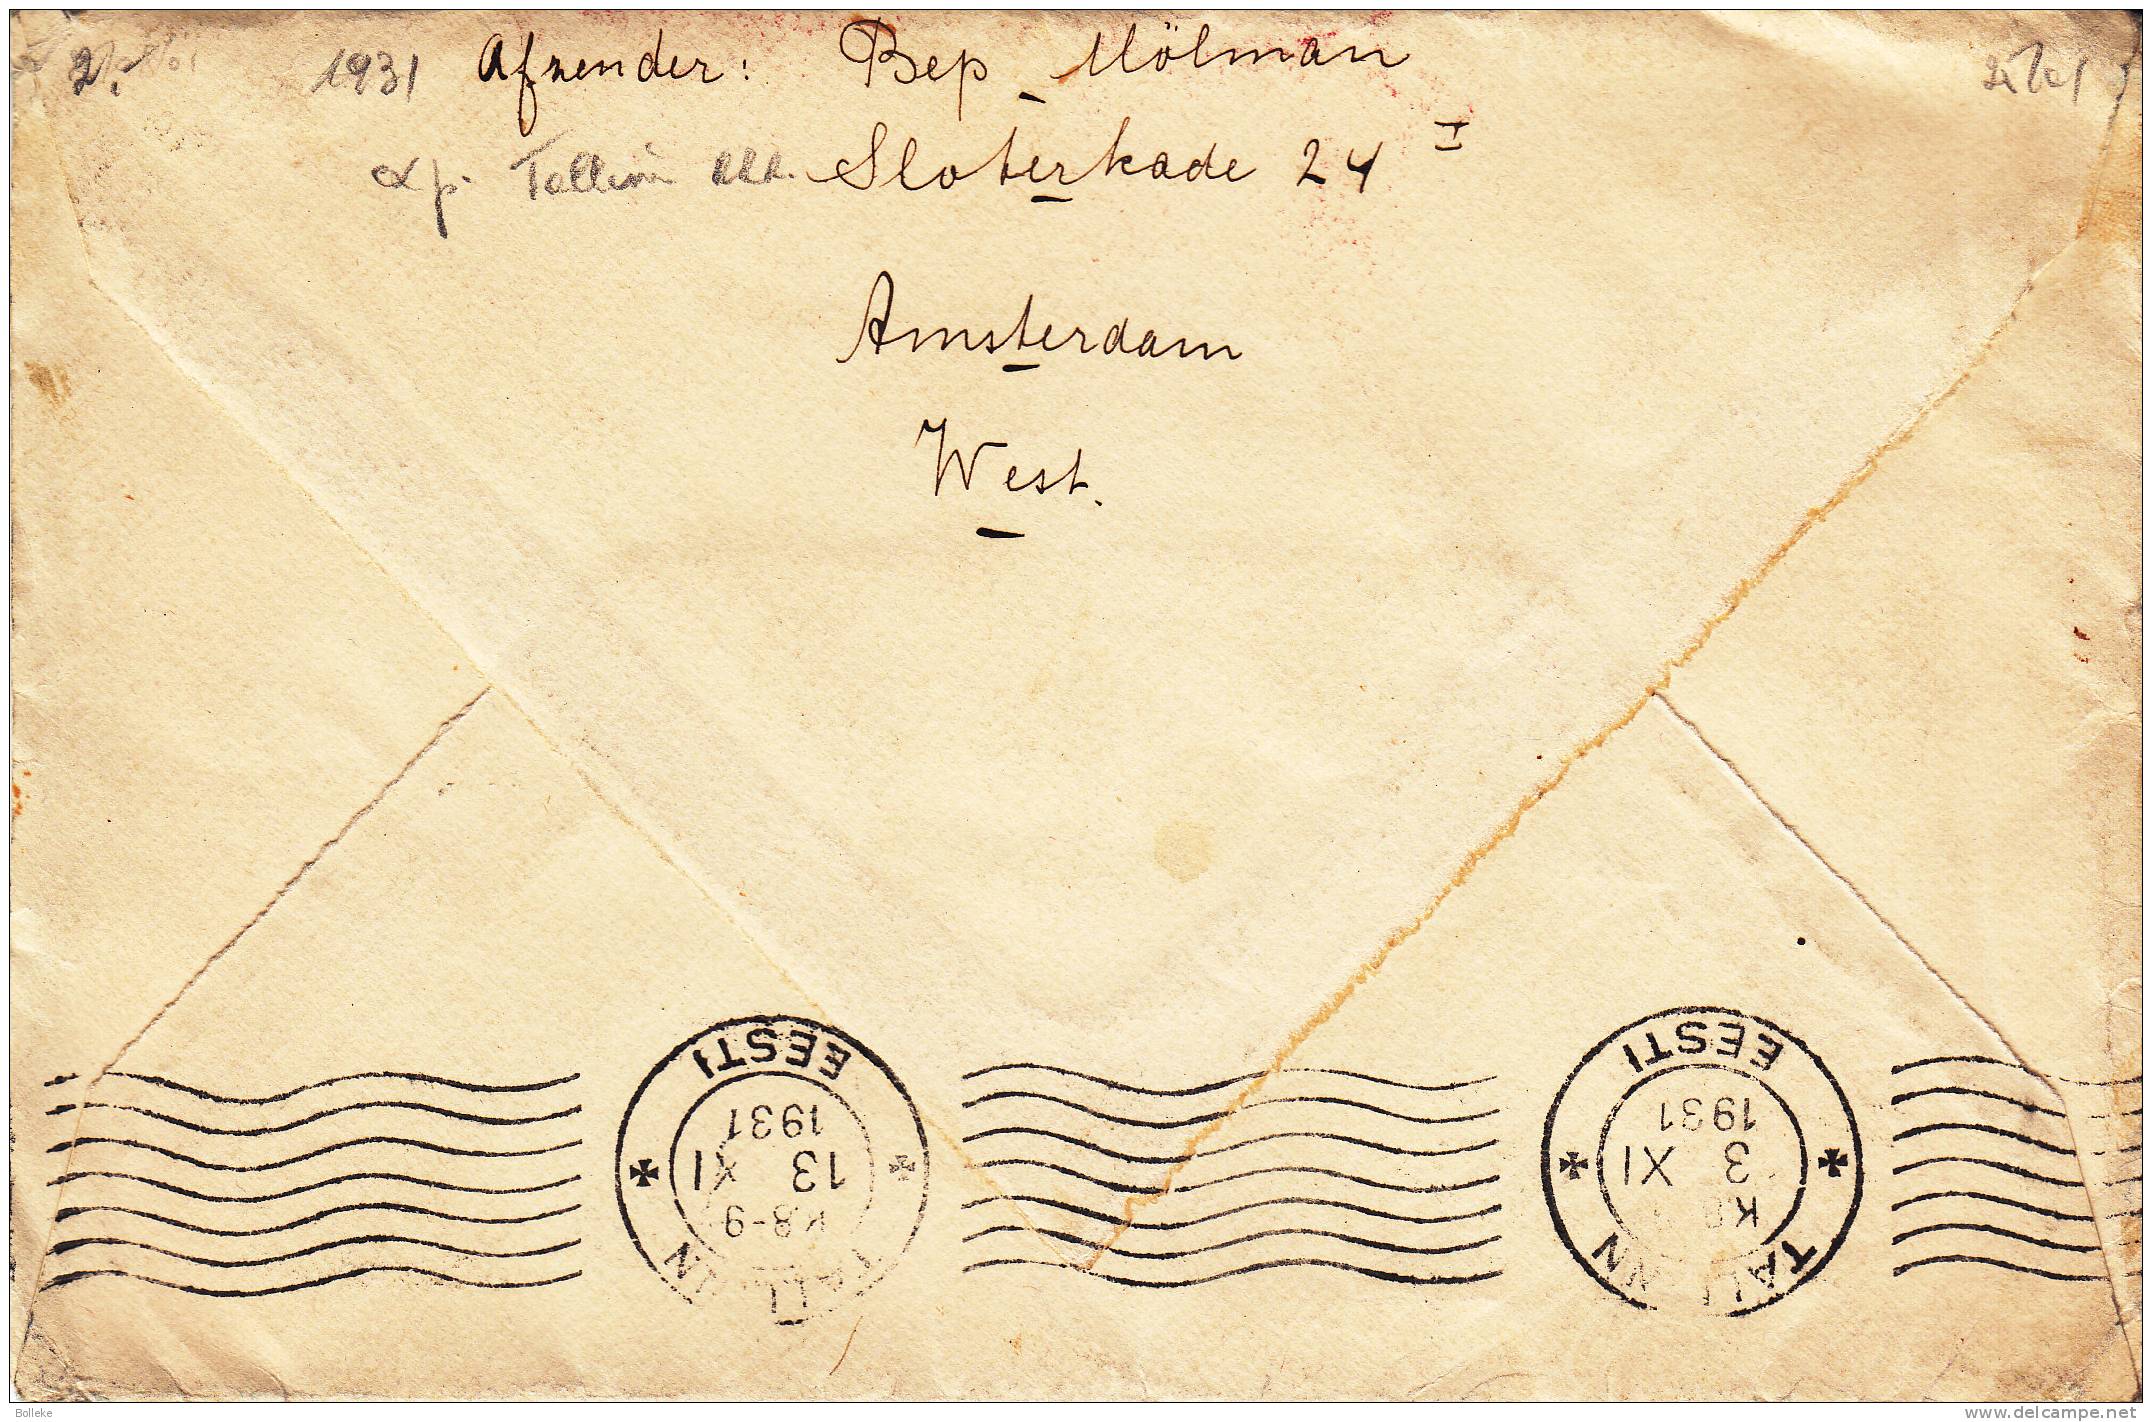 1931 Afzender: Bep Mölman
Sloterkade 24 I
Amsterdam
West.
EESTI
1931
13 XI
K8-9
TALLINN
EESTI
1931
3 XI
TALLINN
Bolleke
www.delcampe.net